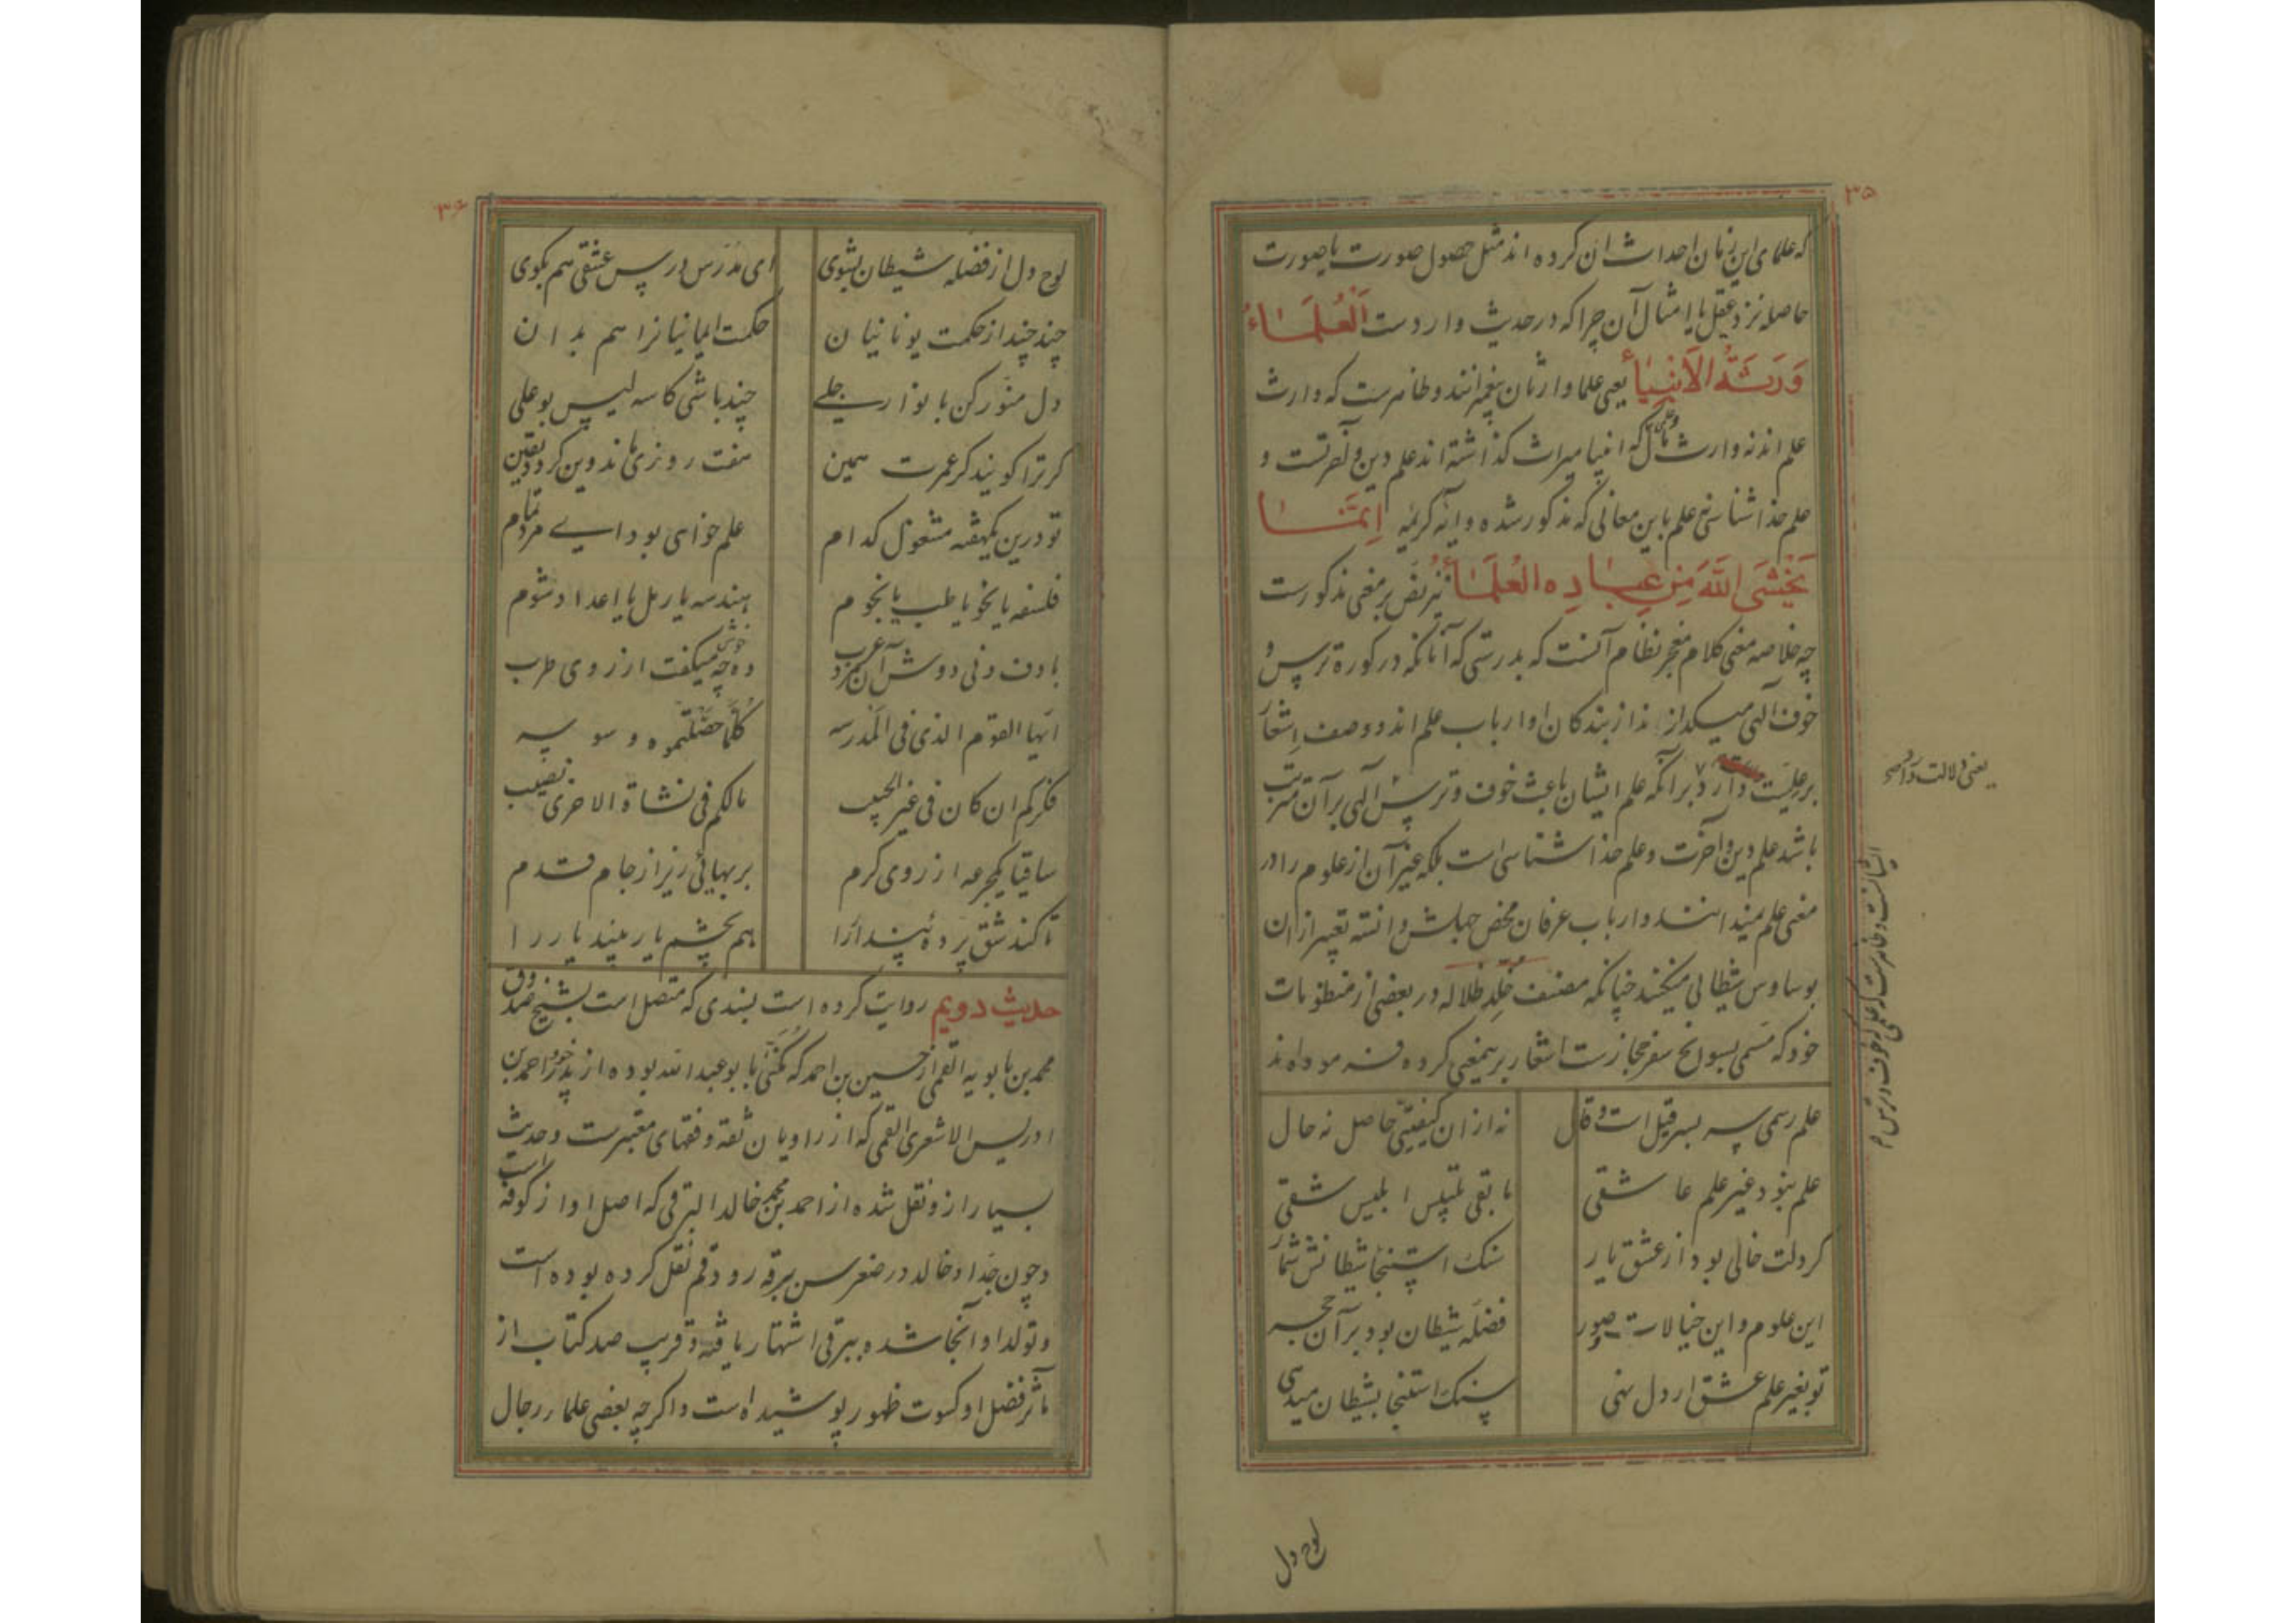 ۳۵
که علمای این زمان احداث ان کرده اند مثل حصول صورت یا صورت
حاصله نزد عقل یا امثال آن چرا که در حدیث واردست اَلْعُلَمَاءُ
وَرَثَةُ الْاَنْبِیَاءِ یعنی علما وارثان پیغمبرانند و ظاهرست که وارث
علم اند نه وارث مال و علمی که انبیا میراث کذاشته اند علم دین و آخرتست و
علم خداشناسی نه علم باین معانی که مذکور شده و آیه کریمه اِنَّمَا
یَخْشَی اللّٰهَ مِنْ عِبَادِهِ الْعُلَمَاءُ نیز نص بر معنی مذکورست
چه خلاصه معنی کلام معجز نظام آنست که بدرستی که آنانکه در کوره ترس و
خوف الهی میکدازند از بندکان او ارباب علم اند و وصف اشعار
بر علیت دارد برانکه علم ایشان باعث خوف و ترس الهی برآن مترتب
باشد علم دین و آخرت و علم خداشناسی است بلکه غیر آن از علوم را در
معنی علم نمیدانند و ارباب عرفان محض جهلش دانسته تعبیر ازان
بوساوس شیطانی میکنند چنانکه مصنف خُلِّد ظلاله در بعضی از منظومات
خود که مسمی بسوانح سفر حجازست اشعار برینمعنی کرده فرموده اند
علم رسمی سر بسر قیل است و قال نه ازان کیفیتی حاصل نه حال
علم نبود غیر علم عاشقی مابقی تلبیس ابلیس شقی
کر دلت خالی بود از عشق یار سنک استنجا شیطانش شمار
این علوم و این خیالات و صور فضله شیطان بود بر آن حجر
تو بغیر علم عشق ار دل نهی سنک استنجا بشیطان میدهی
یعنی دلالت واضح
لوح دل
۳۶
لوح دل از فضله شیطان بشوی ای مدرّس درس عشقی هم بکوی
چند چند از حکمت یونانیان حکمت ایمانیانرا هم بدان
دل منوّر کن بانوار جلی چند باشی کاسه لیس بوعلی
کر ترا کویند کز عمرت همین هفت روزی ماند وین کردد یقین
تو درین یکهفته مشغول کدام علم خواهی بود ای مرد تمام
فلسفه یا نحو یا طب یا نجوم هندسه یا رمل یا اعداد شوم
با دف و نی دوش آن مرد عرب وه چه خوش میکفت از روی طرب
ایّها القوم الذی فی المدرسه کُلَّمَا حَصَّلْتُموه وسوسه
فکرکم ان کان فی غیر الحبیب مالکم فی نشاة الاخری نصیب
ساقیا یکجرعه از روی کرم بر بهائی ریز از جام قدم
تا کند شق پرده پندار را هم بچشم یار بیند یار را
حدیث دویم روایت کرده است بسندی که متصل است بشیخ صدوق
محمد بن بابویه القمی از حسین بن احمد که مُکَنّیٰ بابوعبدالله بوده از پدر خود احمد بن
ادریس الاشعری القمی که از راویان ثقه و فقهای معتبرست و حدیث
بسیار ازو نقل شده از احمد بن محمد خالد البرقی که اصل او از کوفه است
و چون جدّ او خالد در صغر سن ببرقه رود قم نقل کرده بوده است
و تولد او آنجا شده ببرقی اشتهار یافته و قریب صد کتاب از
مآثر فضل او کسوت ظهور پوشیده است و اکرچه بعضی علماء رجال